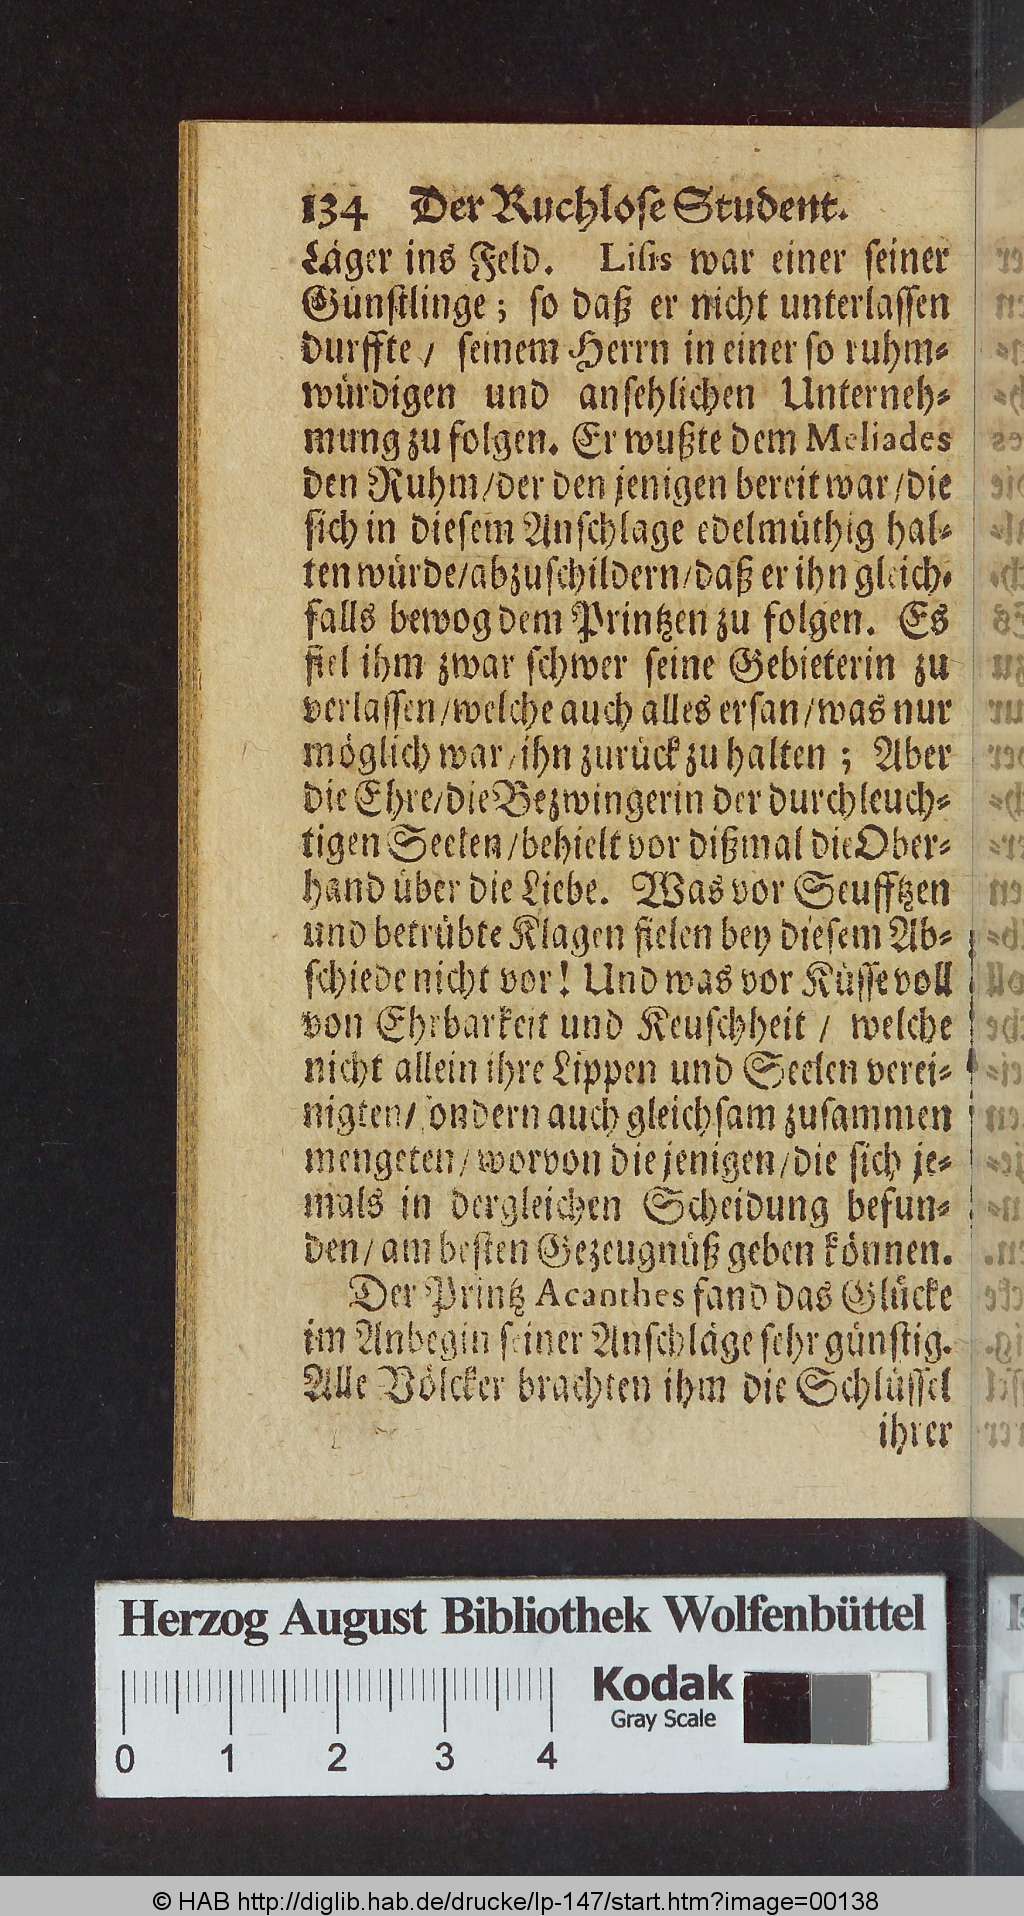 134 Der Ruchlose Student.
Läger ins Feld. Lisis war einer seiner
Günstlinge; so daß er nicht unterlassen
durffte/ seinem Herrn in einer so ruhm-
würdigen und ansehlichen Unterneh-
mung zu folgen. Er wußte dem Meliades
den Ruhm/der den jenigen bereit war/die
sich in diesem Anschlage edelmüthig hal-
ten würde/abzuschildern/daß er ihn gleich-
falls bewog dem Printzen zu folgen. Es
fiel ihm zwar schwer seine Gebieterin zu
verlassen/welche auch alles ersan/was nur
möglich war/ihn zurück zu halten; Aber
die Ehre/die Bezwingerin der durchleuch-
tigen Seelen/behielt vor dißmal die Ober-
hand über die Liebe. Was vor Seufftzen
und betrübte Klagen fielen bey diesem Ab-
schiede nicht vor! Und was vor Küsse voll
von Ehrbarkeit und Keuschheit/ welche
nicht allein ihre Lippen und Seelen verei-
nigten/sondern auch gleichsam zusammen
mengeten/worvon die jenigen/die sich je-
mals in dergleichen Scheidung befun-
den/am besten Gezeugnüß geben können.
Der Printz Acanthes fand das Glücke
im Anbegin seiner Anschläge sehr günstig.
Alle Völcker brachten ihm die Schlüssel
ihrer
Herzog August Bibliothek Wolfenbüttel
Kodak
Gray Scale
0 1 2 3 4
© HAB http://diglib.hab.de/drucke/lp-147/start.htm?image=00138